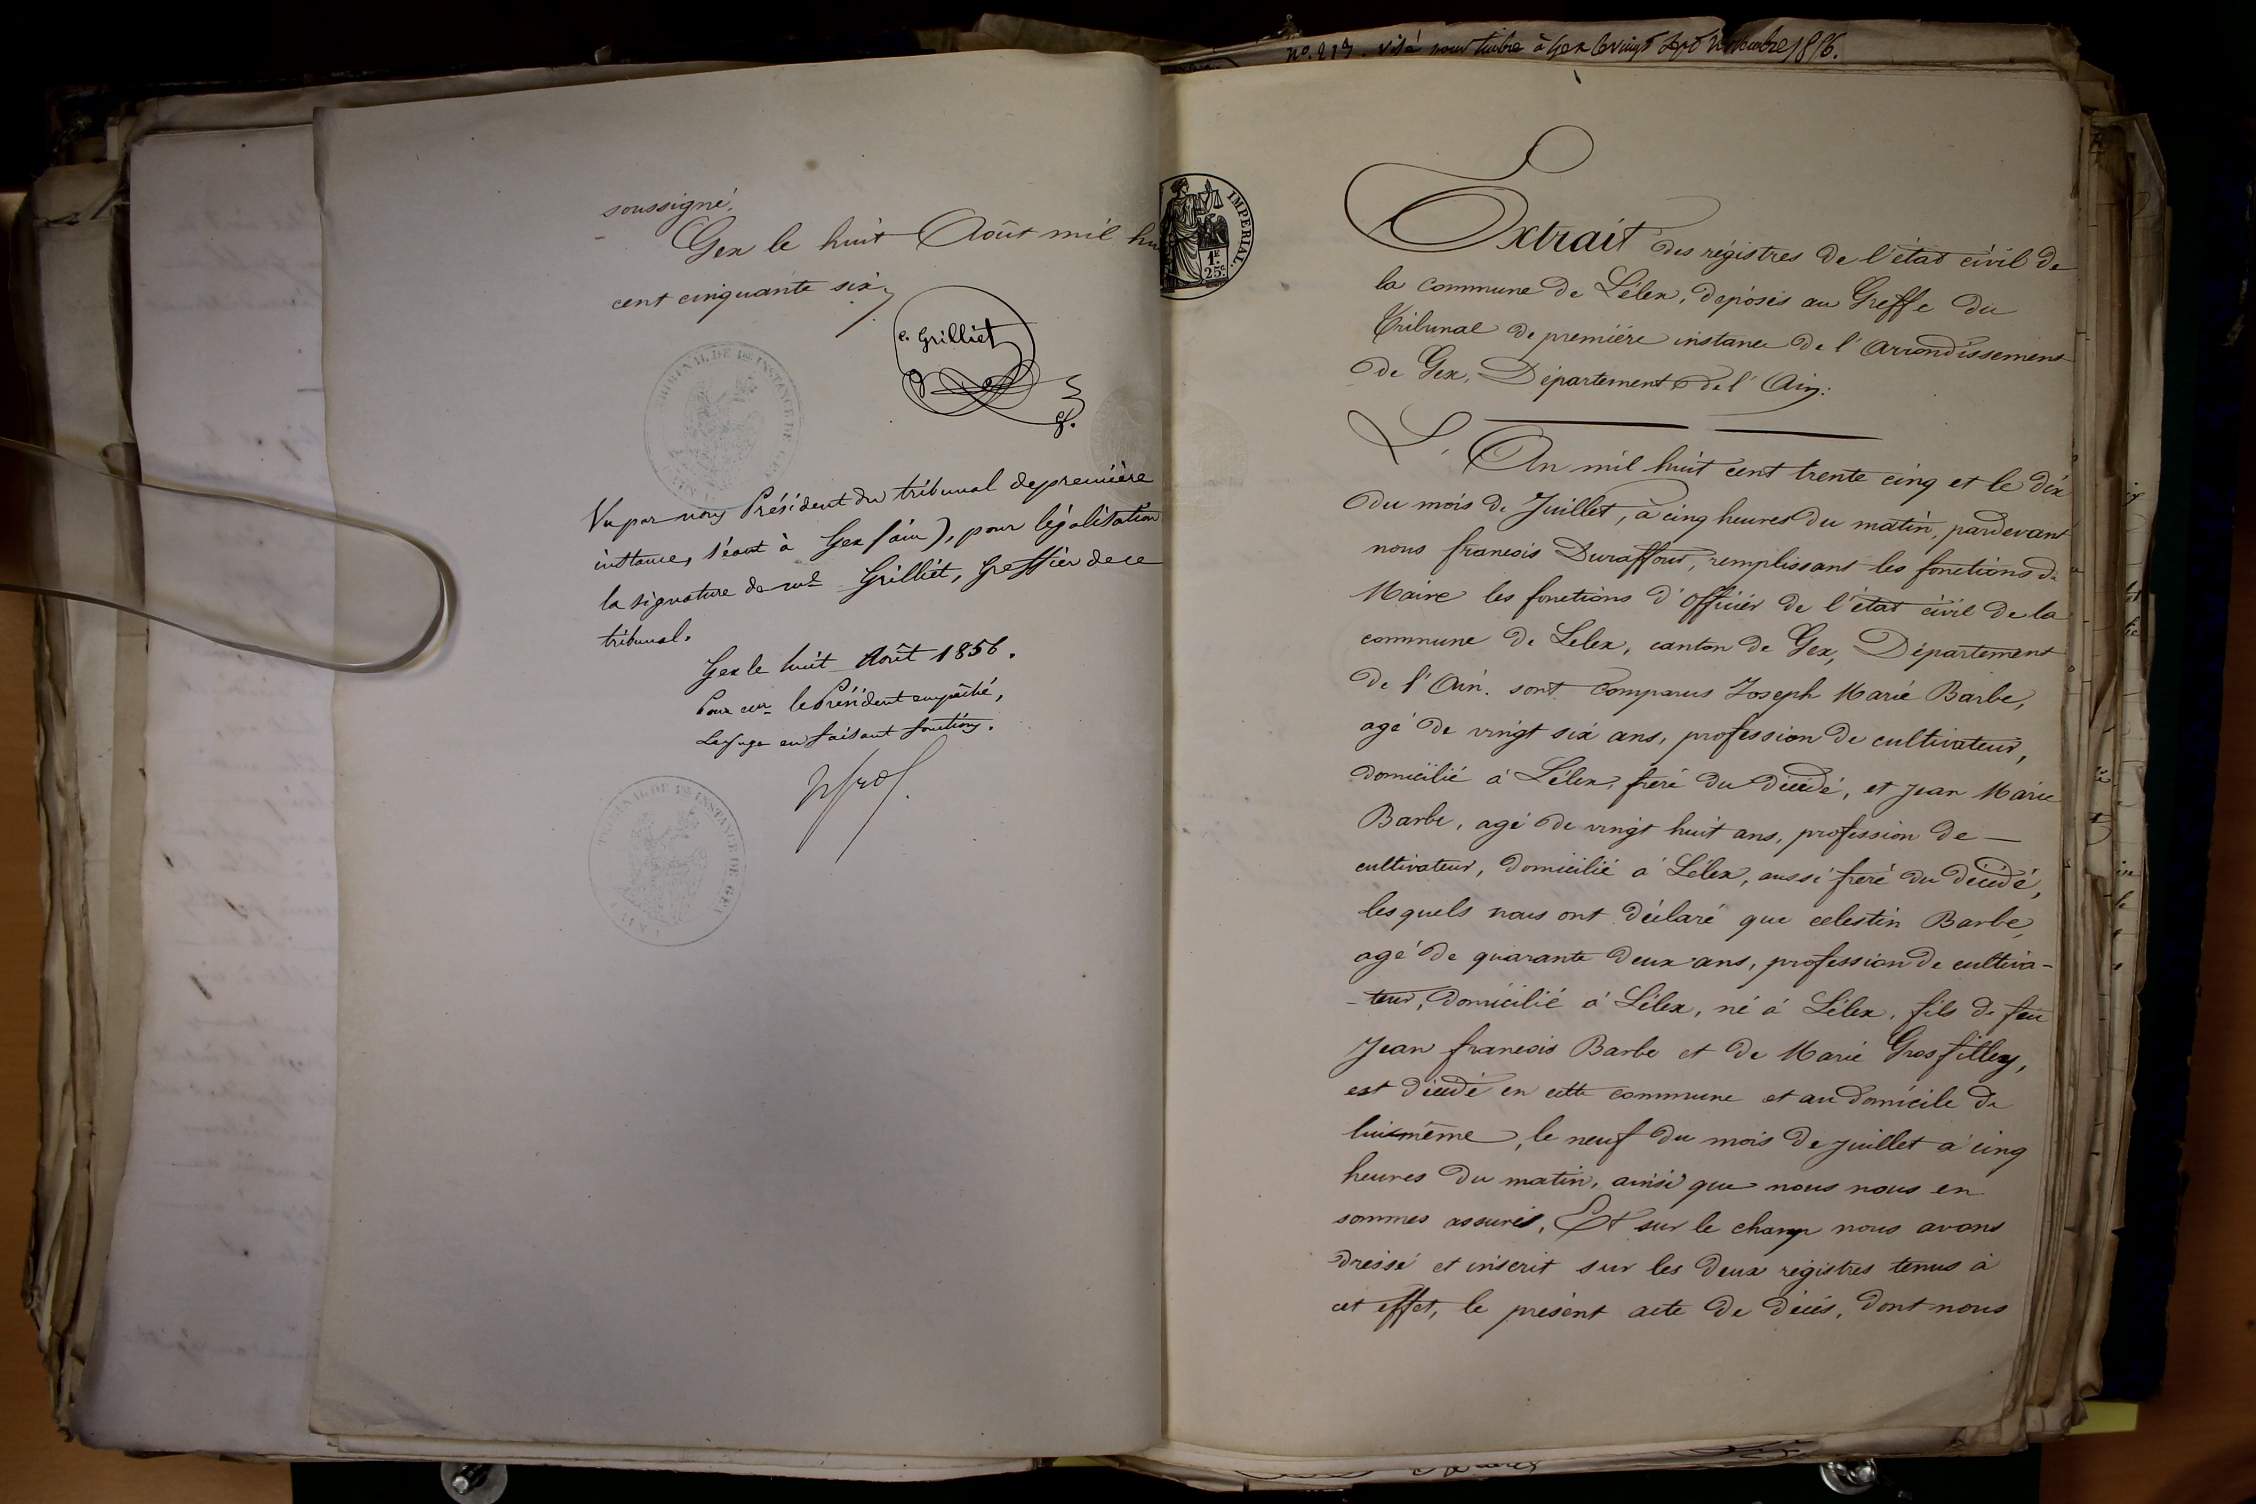 soussigné.
Gex le huit Août mil hu
cent cinquante six
e. Grilliet
TRIBUNAL DE 1re INSTANCE DE GEX
Vu par nous Président du tribunal de première
instance, séant à Gex (ain), pour légalisation
la signature de Mr Grilliet, Greffier de ce
tribunal.
Gex le huit Août 1856.
Pour le Président empêché,
Le juge en faisant fonctions.
TRIBUNAL DE 1re INSTANCE DE GEX
No. 213. visé pour timbre à Gex le vingt sept novembre 1856.
IMPERIAL.
1F.
25c.
Extrait des régistres de l'état civil de
la commune de Lélex, déposés au Greffe du
Tribunal de première instance de l'arrondissement
de Gex, Département de l'Ain:
L'An mil huit cent trente cinq et le dix
du mois de Juillet, à cinq heures du matin, pardevant
nous françois Duraffour, remplissant les fonctions de
Maire les fonctions d'officier de l'état civil de la
commune de Lelex, canton de Gex, Département
de l'Ain. sont comparus Joseph Marie Barbe,
agé de vingt six ans, profession de cultivateur,
domicilié à Lélex, frère du décédé, et Jean Marie
Barbe, agé de vingt huit ans, profession de —
cultivateur, domicilié à Lélex, aussi frère du décédé,
lesquels nous ont déclaré que celestin Barbe,
agé de quarante deux ans, profession de cultiva-
-teur, domicilié à Lélex, né à Lélex, fils de feu
Jean françois Barbe et de Marie Grosfilley,
est décédé en cette commune et au domicile de
lui même, le neuf du mois de juillet à cinq
heures du matin, ainsi que nous nous en
sommes assurés, Et sur le champ nous avons
dressé et inscrit sur les deux régistres tenus à
cet effet, le présent acte de décés, dont nous